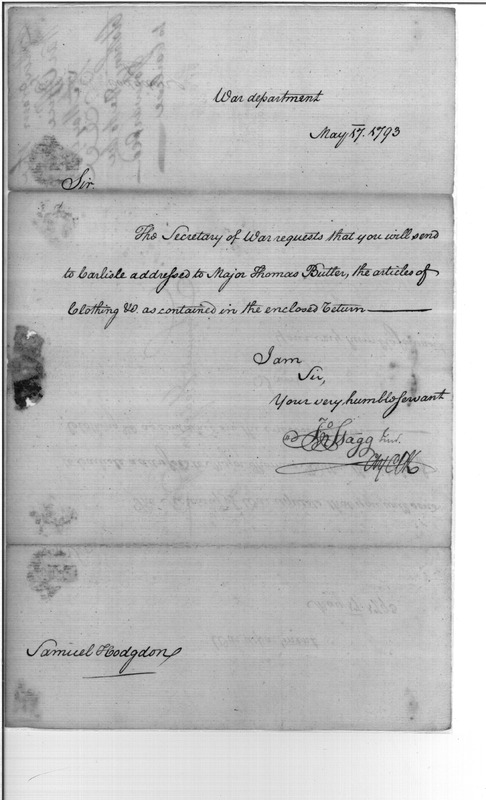 War department
May 17. 1793
Sir.
The Secretary of War requests that you will send
to Carlisle addressed to Major Thomas Butler, the articles of
Clothing &c. as contained in the enclosed return
I am
Sir,
Your very humble servant
Jno Stagg Junr.
Chf Clk
Samuel Hodgdon